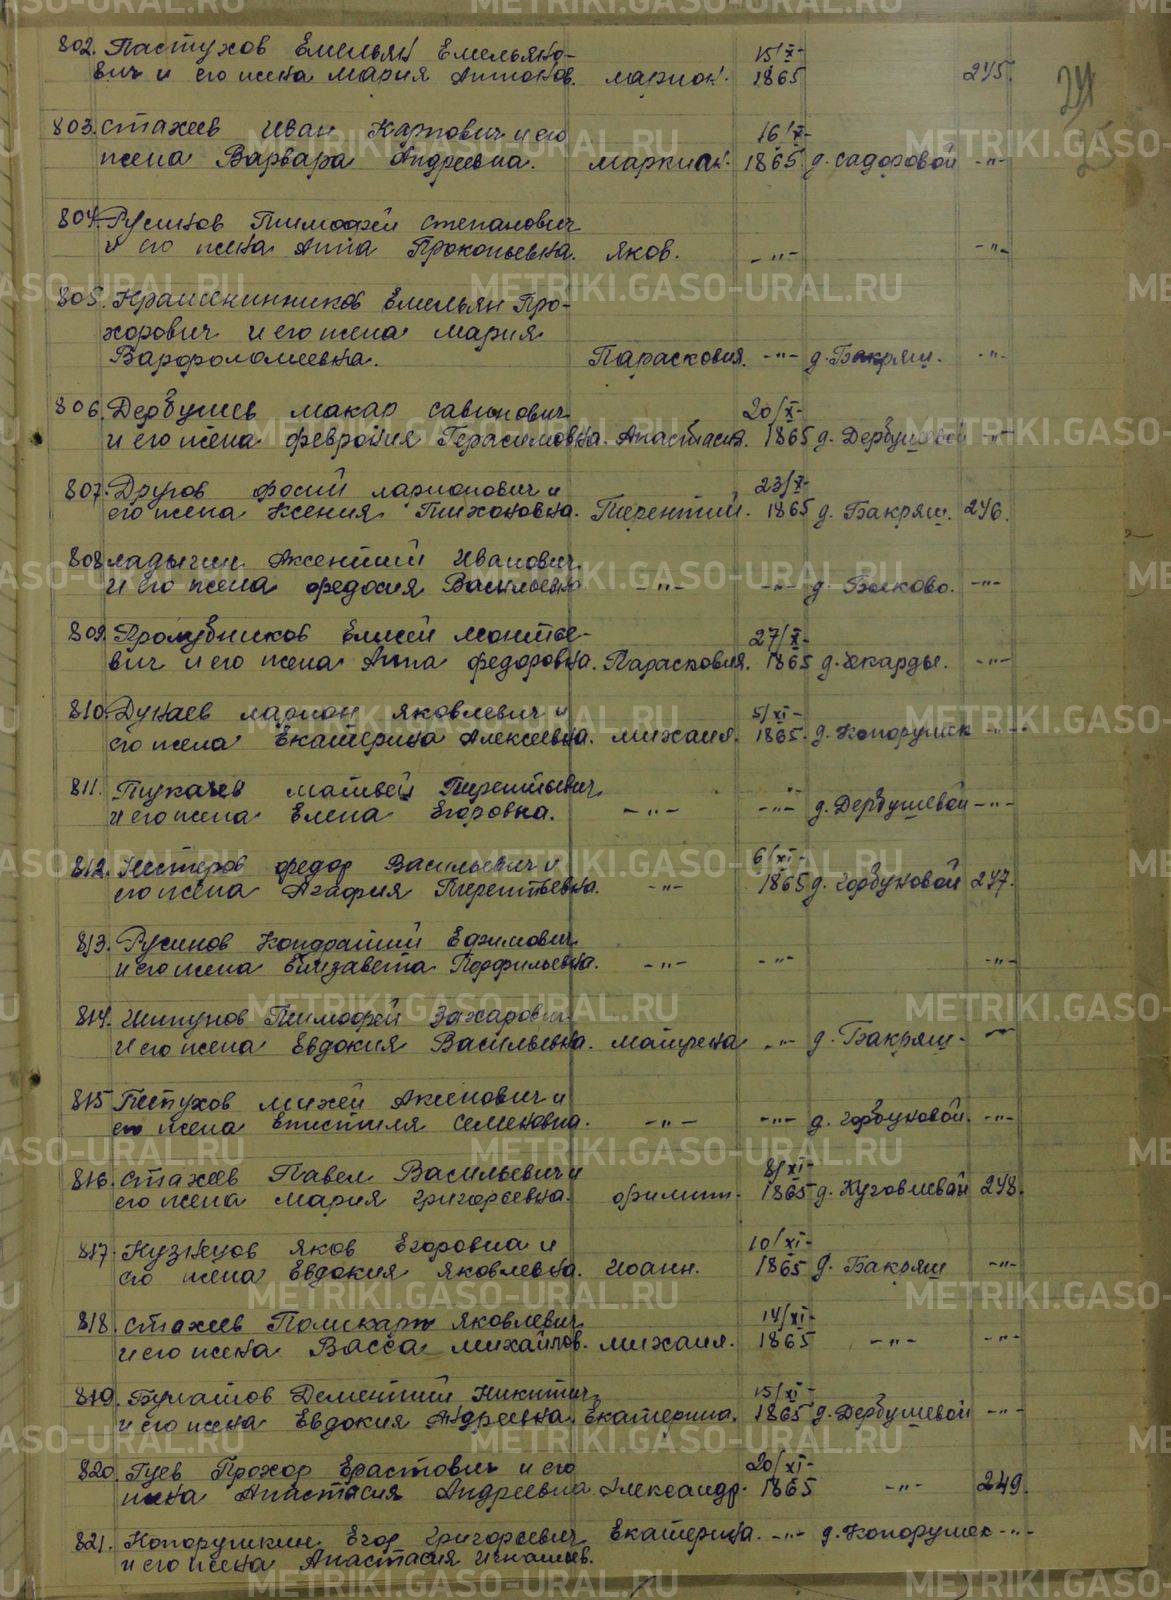 802. Пастухов Емельян Емельяно-
15/X-
вич и его жена Мария Антонов. Марион. 1865 245.
24
803. Стахеев Иван Карпович и его
16/X-
жена Варвара Андреевна. Маркиан. 1865 д. Садоровой -"-
804. Русинов Тимофей Степанович
и его жена Анна Прокопьевна. Яков. -"- -"-
805. Крашенинников Емельян Про-
хорович и его жена Мария
Варфоломеевна. Парасковия. -"- д. Бакряш. -"-
806. Дербушев Макар Савинович
20/X-
и его жена Феврония Герасимовна. Анастасия. 1865 д. Дербушевой -"-
807. Другов Фосий Ларионович и
23/X-
его жена Ксения Тихоновна. Терентий. 1865 д. Бакряш. 246.
808. Ладыгин Аксентий Иванович
и его жена Федосия Васильевна -"- -"- д. Быково. -"-
809. Пролубников Елисей Монтее-
27/X-
вич и его жена Анна Федоровна. Парасковия. 1865 д. Чекарды. -"-
810. Дунаев Ларион Яковлевич и
5/XI-
его жена Екатерина Алексеевна. Михаил. 1865. д. Копорушск -"-
811. Тукачев Матвей Терентьевич
и его жена Елена Егоровна. -"- -"- д. Дербушевой -"-
812. Нестеров Федор Васильевич и
6/XI-
его жена Агафия Терентьевна. -"- 1865 д. Горбуновой 247.
813. Русинов Кондратий Ефимович
и его жена Елизавета Порфильевна. -"- -"- -"-
814. Шипунов Тимофей Захарович
и его жена Евдокия Васильевна. Матрена -"- д. Бакряш. -"-
815 Петухов Михей Аксенович и
его жена Епистиля Семеновна. -"- -"- д. Горбуновой. -"-
816. Стахеев Павел Васильевич и
8/XI-
его жена Мария Григорьевна. Филипп. 1865 д. 248.
817. Кузнецов Яков Егоровна и
10/XI-
его жена Евдокия Яковлевна. Иоанн. 1865 д. Бакряш -"-
818. Стахеев Поликарп Яковлевич
14/XI-
и его жена Васса Михайлов. Михаил. 1865 -"- -"-
819. Булатов Дементий Никитич
15/XI-
и его жена Евдокия Андреевна. Екатерина. 1865 д. Дербушевой -"-
820. Гуев Прохор Ерастович и его
20/XI-
жена Анастасия Андреевна Александр. 1865 -"- 249.
821. Копорушкин Егор Григорьевич Екатерина. -"- д. Копорушек -"-
и его жена Анастасия Игнатьев.
METRIKI.GASO-URAL.RU